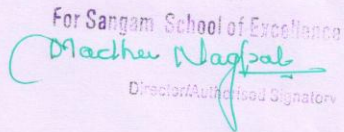 For Sangam School of Excellence
Madhu Nagpal
Director/Authorised Signatory